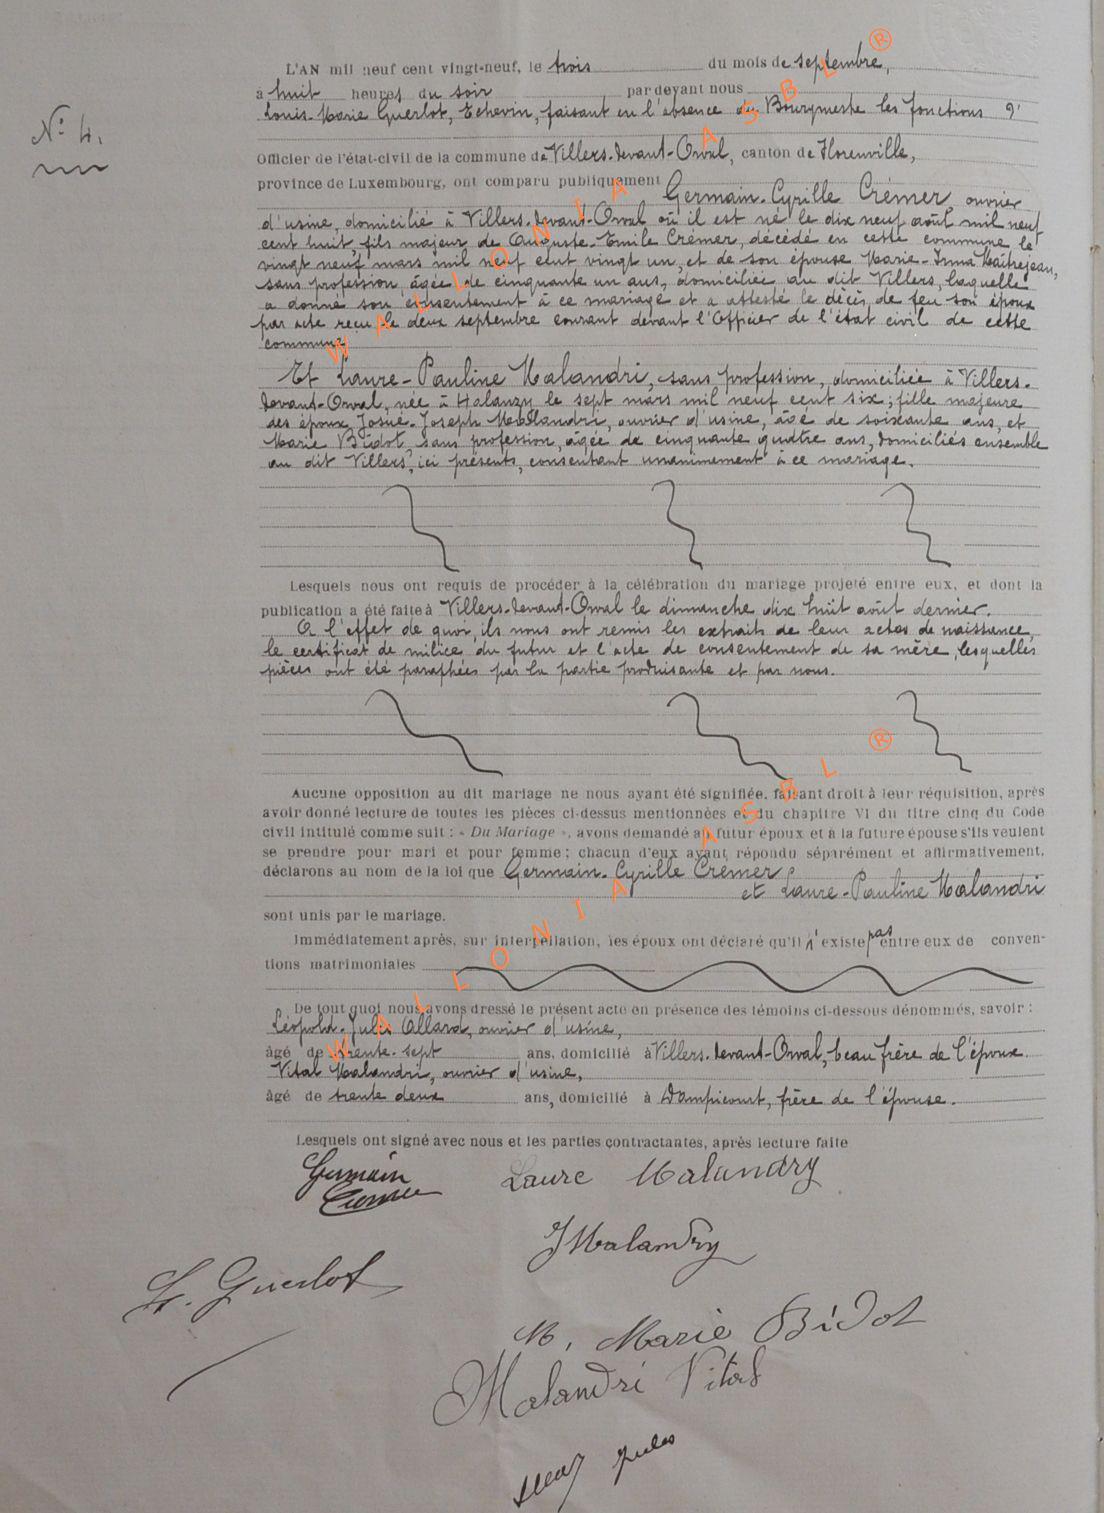 N° 4.
L'AN mil neuf cent vingt-neuf, le trois du mois de septembre,
à huit heures du soir par devant nous
Louis-Marie Guerlot, Echevin, faisant en l'absence du Bourgmestre les fonctions d'
Officier de l'état-civil de la commune de Villers-devant-Orval, canton de Florenville,
province de Luxembourg, ont comparu publiquement Germain-Cyrille Crémer, ouvrier
d'usine, domicilié à Villers-devant-Orval où il est né le dix neuf août mil neuf
cent huit, fils majeur de Auguste-Emile Crémer, décédé en cette commune le
vingt neuf mars mil neuf cent vingt un, et de son épouse Marie-Irma Maîtrejean,
sans profession, âgée de cinquante un ans, domiciliée au dit Villers, laquelle
a donné son consentement à ce mariage et a attesté le décès de feu son époux
par acte reçu le deux septembre courant devant l'Officier de l'état civil de cette
commune
Et Laure-Pauline Malandri, sans profession, domiciliée à Villers-
devant-Orval, née à Halanzy le sept mars mil neuf cent six; fille majeure
des époux Josué-Joseph Malandri, ouvrier d'usine, âgé de soixante ans, et
Marie Bidot, sans profession, âgée de cinquante quatre ans, domiciliés ensemble
au dit Villers, ici présents, consentant unanimement à ce mariage.
Lesquels nous ont requis de procéder à la célébration du mariage projeté entre eux, et dont la
publication a été faite à Villers-devant-Orval le dimanche dix huit août dernier.
A l'effet de quoi, ils nous ont remis les extraits de leur actes de naissance,
le certificat de milice du futur et l'acte de consentement de sa mère, lesquelles
pièces ont été paraphées par la partie produisante et par nous.
Aucune opposition au dit mariage ne nous ayant été signifiée, faisant droit à leur réquisition, après
avoir donné lecture de toutes les pièces ci-dessus mentionnées et du chapitre VI du titre cinq du Code
civil intitulé comme suit : « Du Mariage », avons demandé au futur époux et à la future épouse s'ils veulent
se prendre pour mari et pour femme ; chacun d'eux ayant répondu séparément et affirmativement,
déclarons au nom de la loi que Germain-Cyrille Crémer
et Laure-Pauline Malandri
sont unis par le mariage.
Immédiatement après, sur interpellation, les époux ont déclaré qu'il n'existe pas entre eux de conven-
tions matrimoniales
De tout quoi nous avons dressé le présent acte en présence des témoins ci-dessous dénommés, savoir :
Léopold-Jules Allard, ouvrier d'usine,
âgé de trente-sept ans, domicilié à Villers-devant-Orval, beau frère de l'époux
Vital Malandri, ouvrier d'usine,
âgé de trente deux ans, domicilié à Dampicourt, frère de l'épouse.
Lesquels ont signé avec nous et les parties contractantes, après lecture faite
Germain
Cremer
Laure Malandry
J Malandry
L. Guerlot
M. Marie Bidot
Malandri Vital
Jules
WALLONIA ASBL ®
WALLONIA ASBL ®